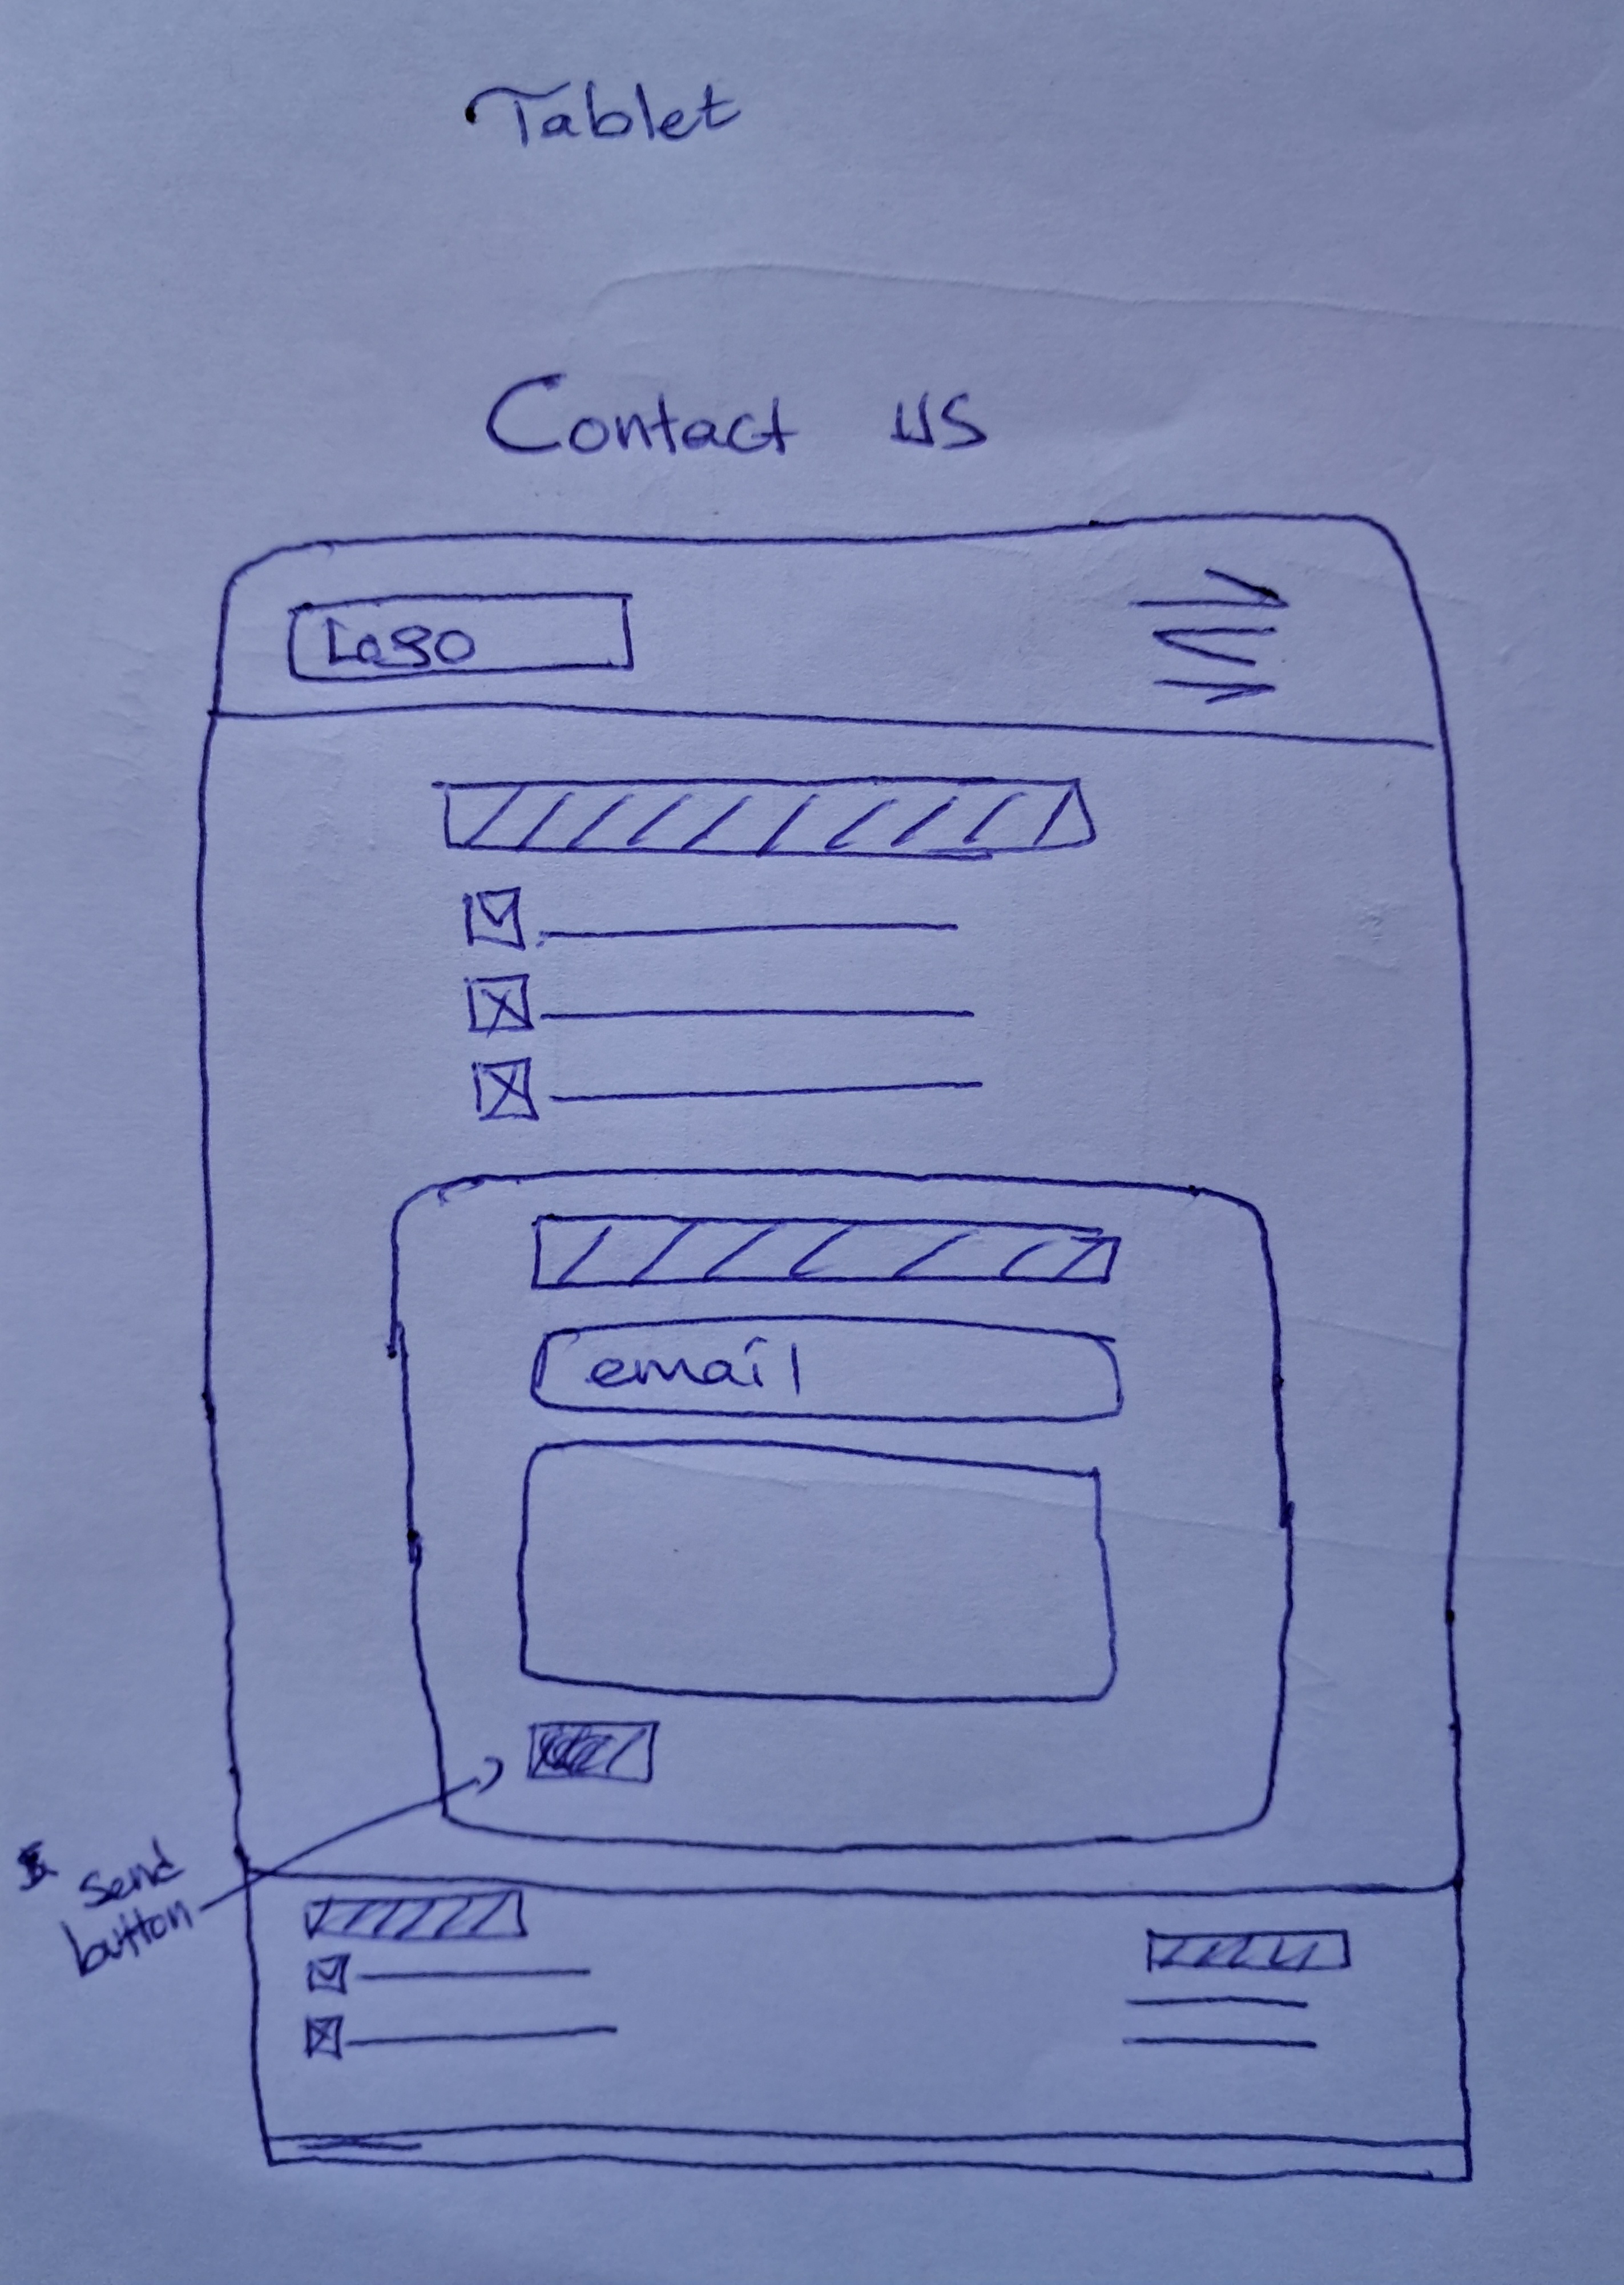 Tablet
Contact us
Logo
email
Send
button